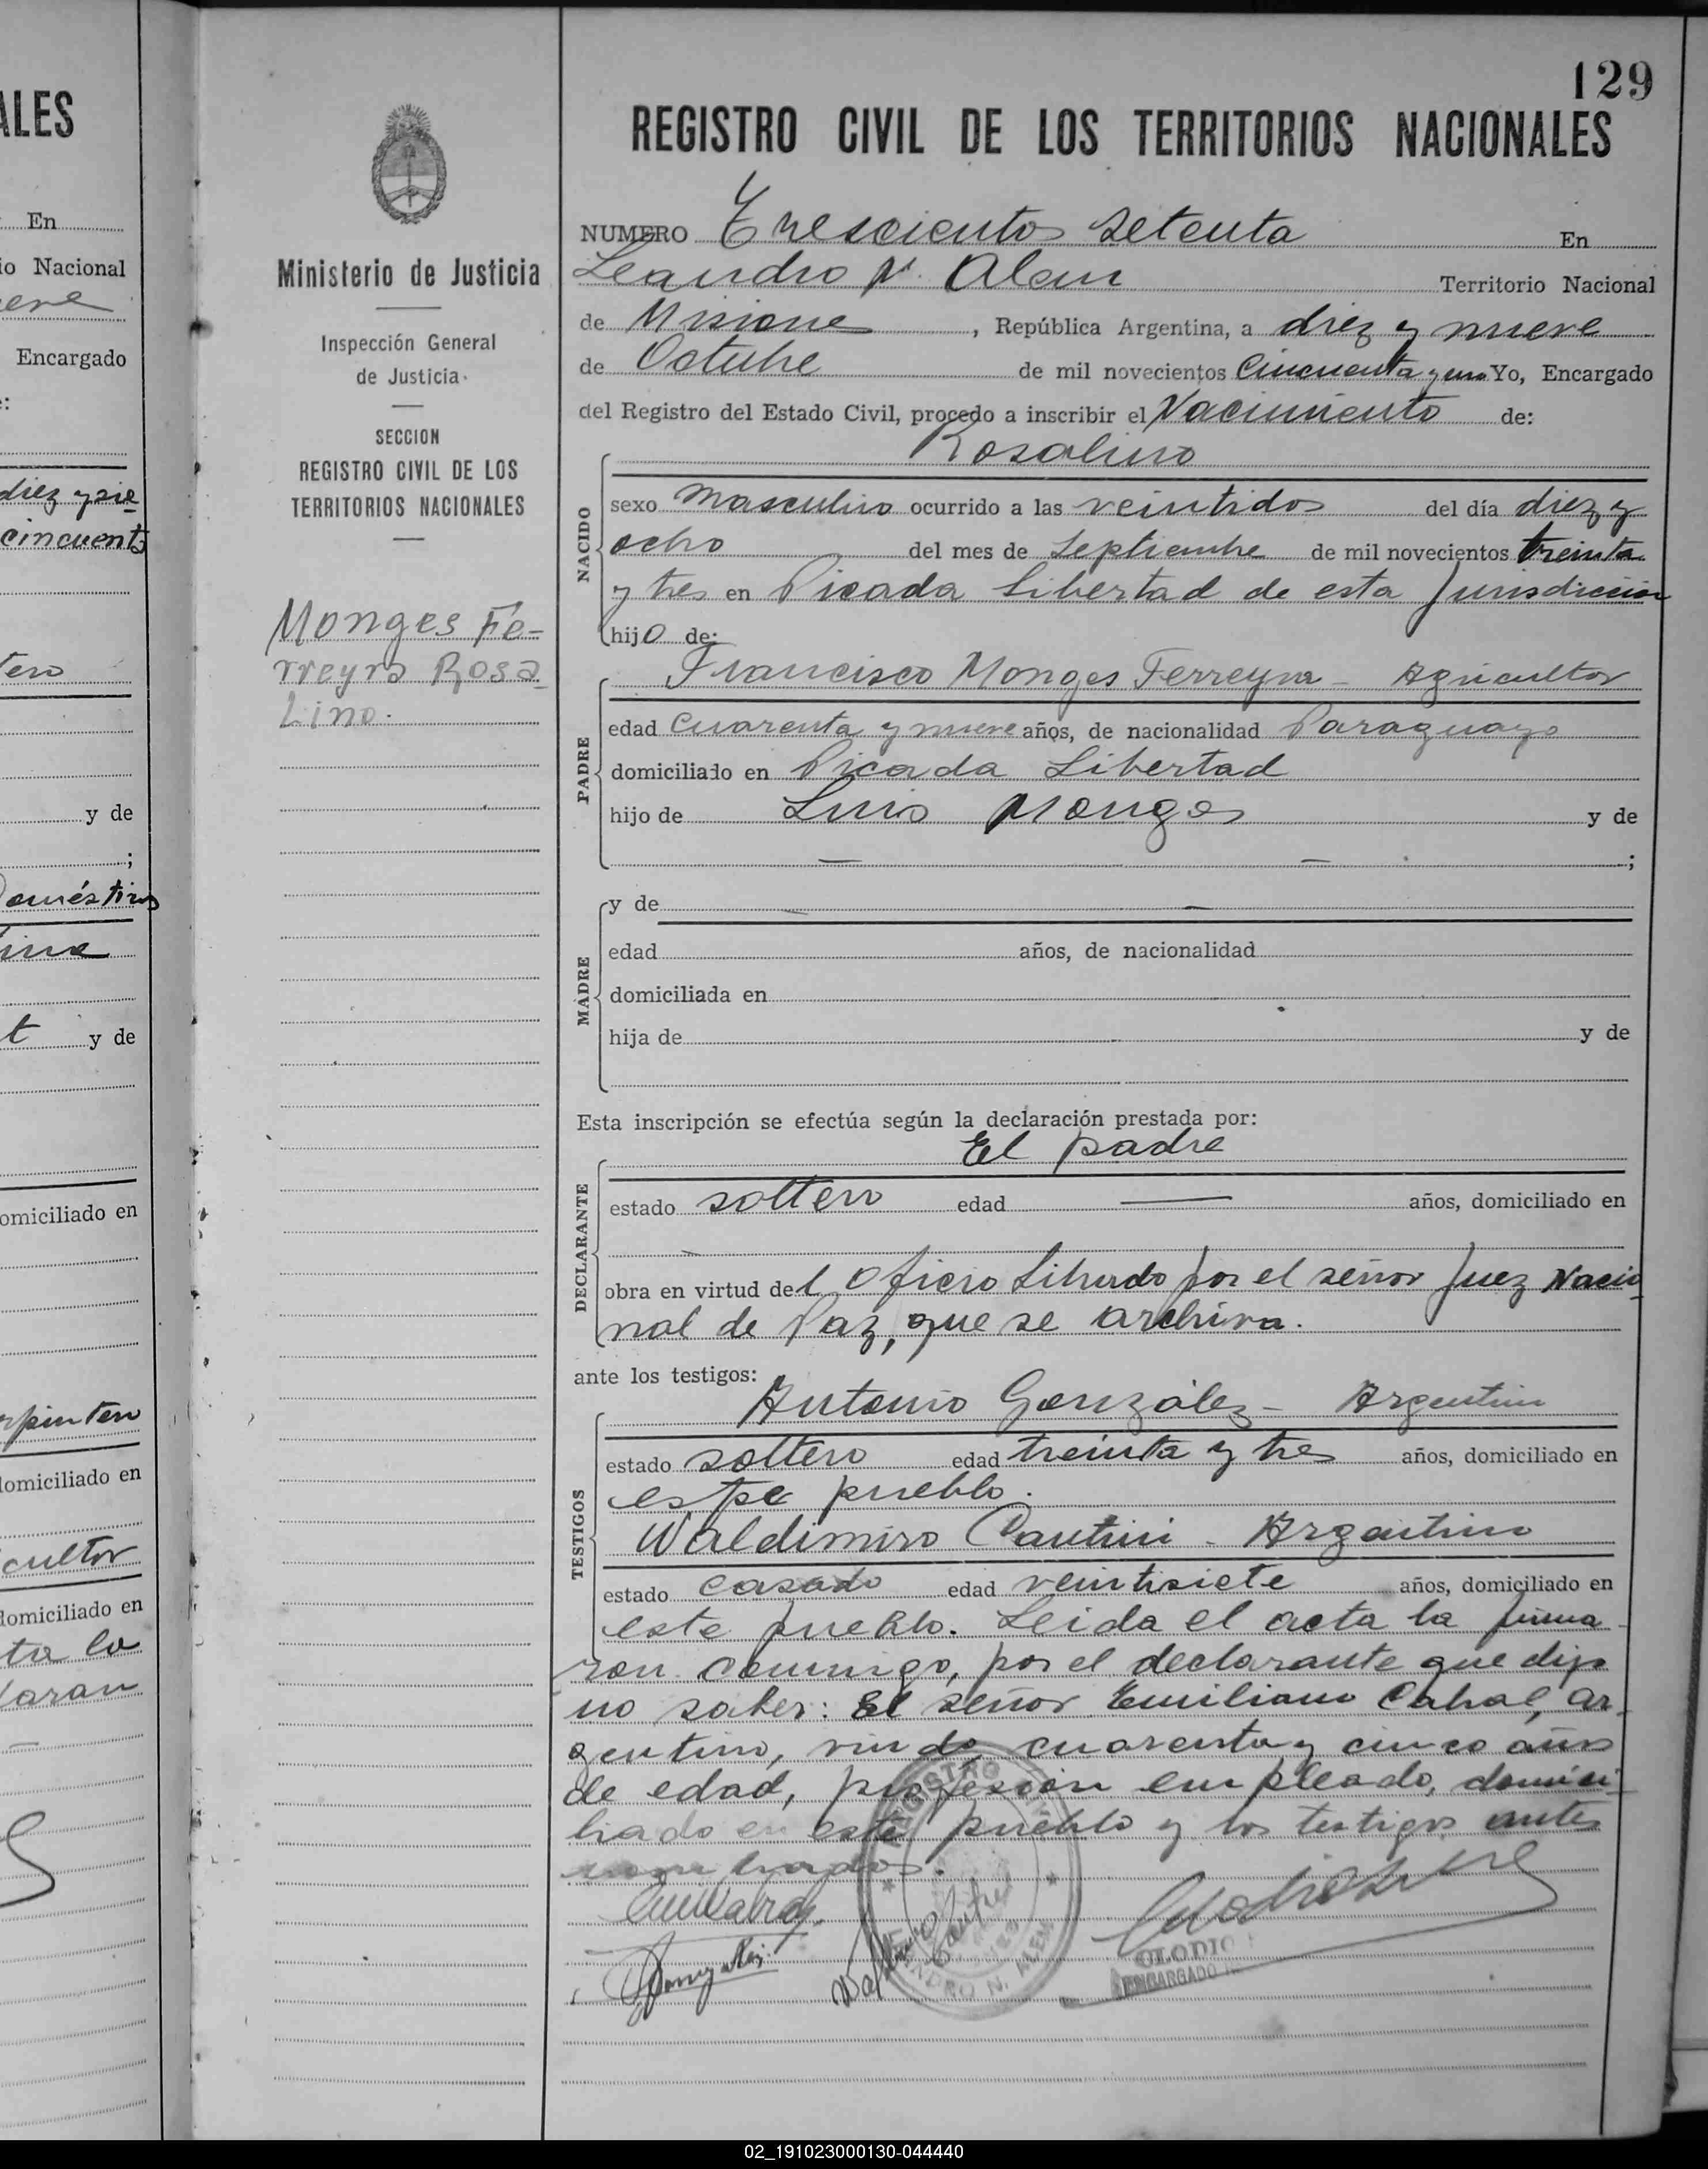 ALES
En
io Nacional
Encargado
diez y sie
cincuenta
y de
;
t y de
omiciliado en
domiciliado en
cultor
domiciliado en
129
REGISTRO CIVIL DE LOS TERRITORIOS NACIONALES
Ministerio de Justicia
Inspección General
de Justicia
SECCION
REGISTRO CIVIL DE LOS
TERRITORIOS NACIONALES
Monges Fe-
rreyra Rosa-
Lino.
NUMERO Trescientos setenta En
Leandro N. Alem Territorio Nacional
de Misiones, República Argentina, a diez y nueve
de Octubre de mil novecientos cincuenta y uno Yo, Encargado
del Registro del Estado Civil, procedo a inscribir el Nacimiento de:
Rosalino
NACIDO
sexo masculino ocurrido a las veintidos del día diez y
ocho del mes de Septiembre de mil novecientos treinta
y tres en Picada Libertad de esta Jurisdicción
hijo de:
Francisco Monges Ferreyra - Agricultor
PADRE
edad cuarenta y nueve años, de nacionalidad Paraguayo
domiciliado en Picada Libertad
hijo de Luis Monges y de
— — ;
MADRE
y de — —
edad años, de nacionalidad
domiciliada en
hija de y de
Esta inscripción se efectúa según la declaración prestada por:
El padre
DECLARANTE
estado soltero edad — años, domiciliado en
obra en virtud del Oficio Librado por el señor Juez Nacio-
nal de Paz, que se archiva.
ante los testigos:
Antonio González - Argentino
TESTIGOS
estado soltero edad treinta y tres años, domiciliado en
este pueblo.
Waldimiro Cantini - Argentino
estado casado edad veintisiete años, domiciliado en
este pueblo. Leida el acta la firma-
ron conmigo, por el declarante que dijo
no saber: El señor Emiliano Cabral, ar-
gentino, viudo, cuarenta y cinco años
de edad, profesión empleado, domici-
liado en este pueblo y los testigos antes
nombrados.
REGISTRO
LEANDRO N. ALEM
ENCARGADO
02_191023000130-044440